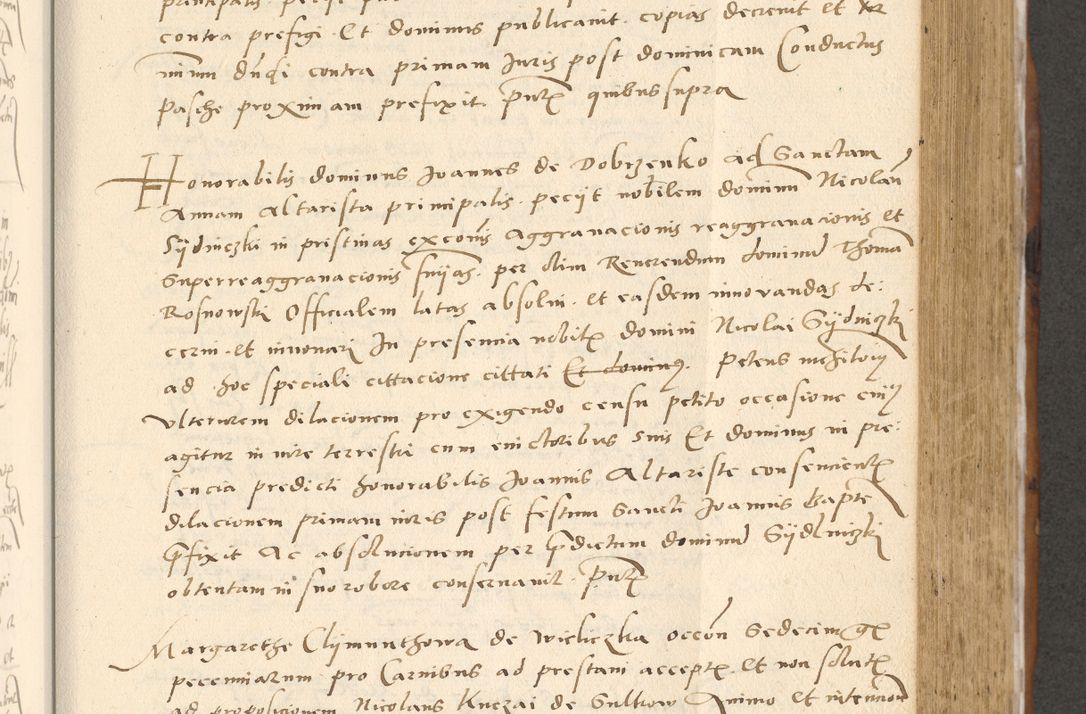 contra prefigi. Et dominus publicavit. copias decrevit et
minum dnci contra primam Iuris post dominicam Conductus
Pasche proximam prefixit. Pntx quibus supra
Honorabilis dominus Joannes de Dobrzenko ad Sanctam
Annam Altarista principalis. peciit nobilem dominum Nicolaum
Sÿdniczki in pristinas exconis Aggravacionis reaggravacionis et
Superreaggravacionis snÿas. per olim Reverendum dominum Thomam
Rosnowski Officialem latas absolvi. et easdem innovandas de:
cerni. et innovari In presencia nobilis domini Nicolai Sÿdniczki
ad hoc speciali cittacione cittati Et dominus. Petens
ulteriorem dilacionem pro exigendo censu petito occasione cuius
agitur in iure terrestri cum evictoribus suis Et dominus in pre:
sencia predicti honorabilis Joannis Altariste consencientis
dilacionem primam iuris post festum Sancti Joannis Bapte
pfixit Ac absolucionem per pdictum dominum Sÿdlniczki
obtentam in suo robore conservavit. Pntx
Margarethe Clÿmunthowa de Wieliczka occon Sedecim gr
pecuniarum pro Carnibus ad prestam acceptx. Et non solutx
ad proposicionem Nicolaus Kuczai de Sulkow Animo et intencion